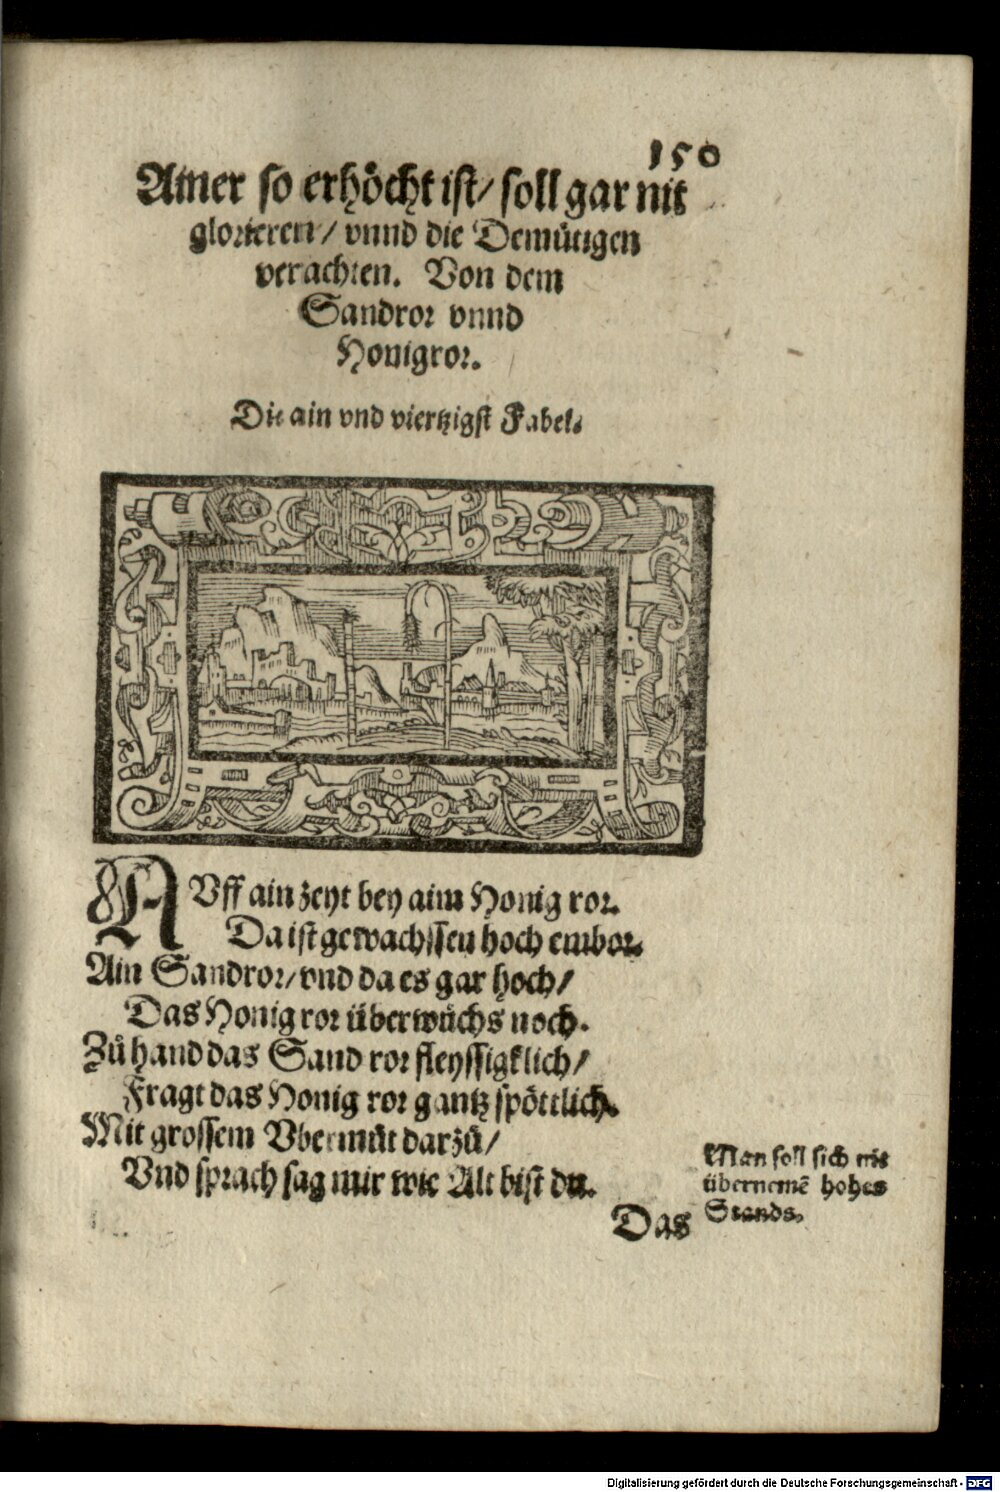 150
Ainer so erhöcht ist/ soll gar nit
glorieren/ vnnd die Demütigen
verachten. Von dem
Sandror vnnd
Honigror.
Die ain vnd viertzigst Fabel.
AVff ain zeyt bey aim Honig ror.
Da ist gewachssen hoch embor.
Ain Sandror/ vnd da es gar hoch/
Das Honig ror überwůchs noch.
Zů hand das Sand ror fleyssigklich/
Fragt das Honig ror gantz spöttlich.
Mit grossem Vbermůt darzů/
Vnd sprach sag mir wie Alt bist du.
Man soll sich nit
übernemē hohes
Stands.
Das
Digitalisierung gefördert durch die Deutsche Forschungsgemeinschaft - DFG